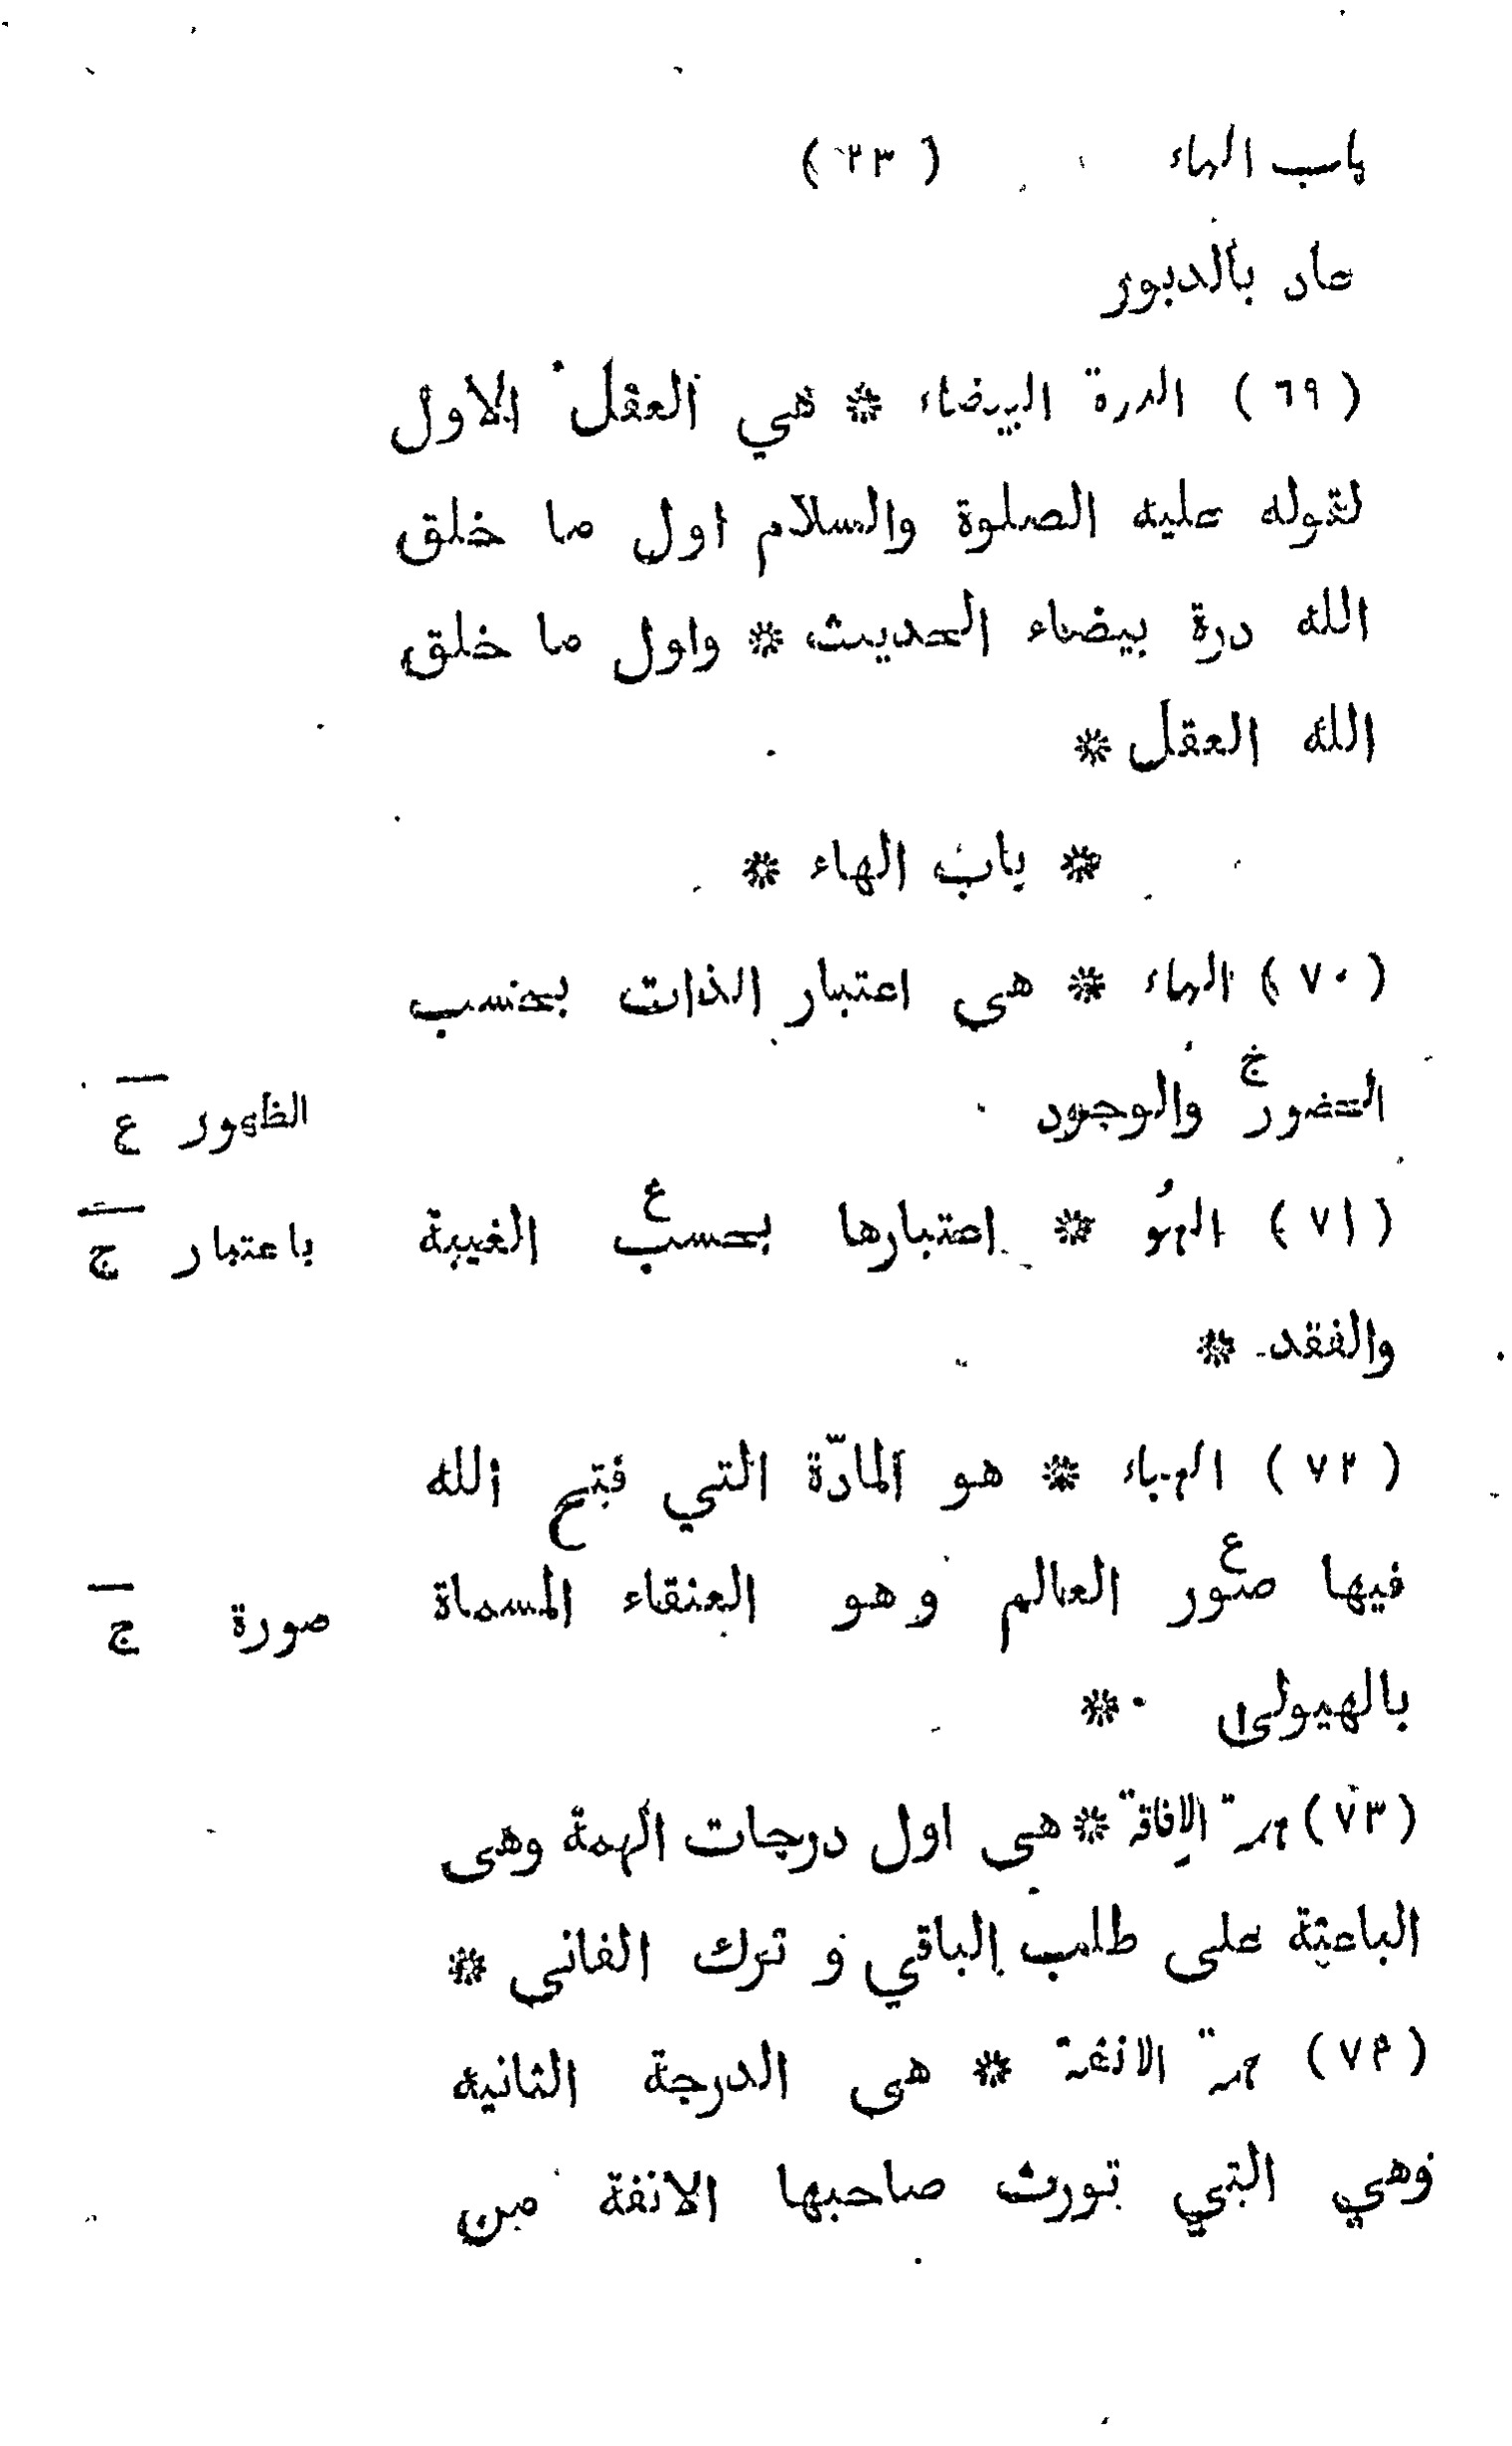 باب الهاء ( ٢٣ )
عاد بالدبور
( ٦٩ ) الدرة البيضاء * هي العقل الاول
لقوله عليه الصلوة والسلام اول ما خلق
الله درة بيضاء الحديث * واول ما خلق
الله العقل *
* باب الهاء *
( ٧٠ ) الهاء * هى اعتبار الذات بحسب
الحضور ج والوجود الظهور ع
( ٧١ ) الهُو * اعتبارها بحسب ع الغيبة باعتبار ج
والفقد *
( ٧٢ ) الهباء * هو المادّة التي فتح الله
فيها صور ع العالم وهو العنقاء المسماة صورة ج
بالهيولى *
( ٧٣ ) همة الافاقة * هى اول درجات الهمة وهى
الباعثة على طلب الباقي و ترك الفانى *
( ٧۴ ) همة الانفة * هى الدرجة الثانيه
وهي التي تورث صاحبها الانفة من